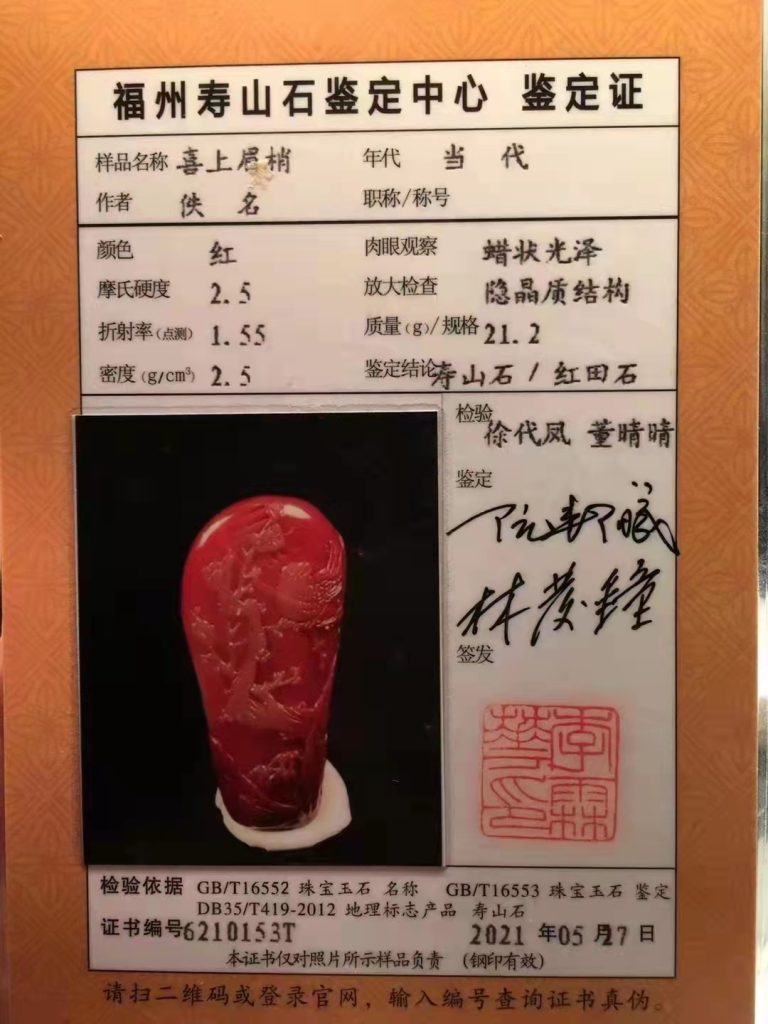 福州寿山石鉴定中心 鉴定证
样品名称 喜上眉梢 年代 当代
作者 佚名 职称/称号
颜色 红 肉眼观察 蜡状光泽
摩氏硬度 2.5 放大检查 隐晶质结构
折射率(点测) 1.55 质量(g)/规格 21.2
密度(g/cm³) 2.5 鉴定结论 寿山石/红田石
检验 徐代凤 董晴晴
鉴定
林发钟
签发
检验依据 GB/T16552 珠宝玉石 名称 GB/T16553 珠宝玉石 鉴定
DB35/T419-2012 地理标志产品 寿山石
证书编号 6210153T 2021 年 05 月 27 日
本证书仅对照片所示样品负责 (钢印有效)
请扫二维码或登录官网，输入编号查询证书真伪。